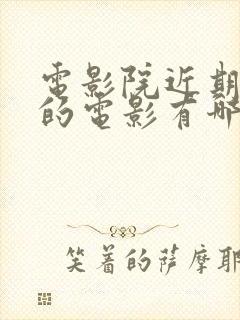 電影院近期
的電影有哪
笑着的萨摩耶